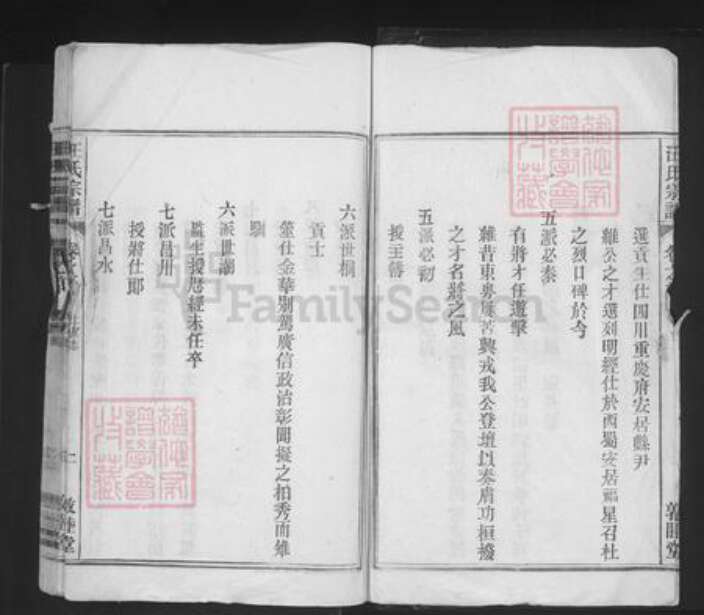 汪氏宗譜
選貢生仕四川重慶府安居縣尹
維公之才選列明經仕於西蜀安居福星召杜
之烈口碑於今
五派必泰
有將才任遊擊
維昔東粵
興戎我公登壇以奏膚功桓撥
之才名將之風
五派必
授主簿
六派世桐
貢士
筮仕金華別駕廣信政治彰聞擬之柏秀而雄
六派世
監生授歷經未任卒
七派昌
授將仕郎
七派昌水
汪氏宗譜
敦睦堂
FamilySearch